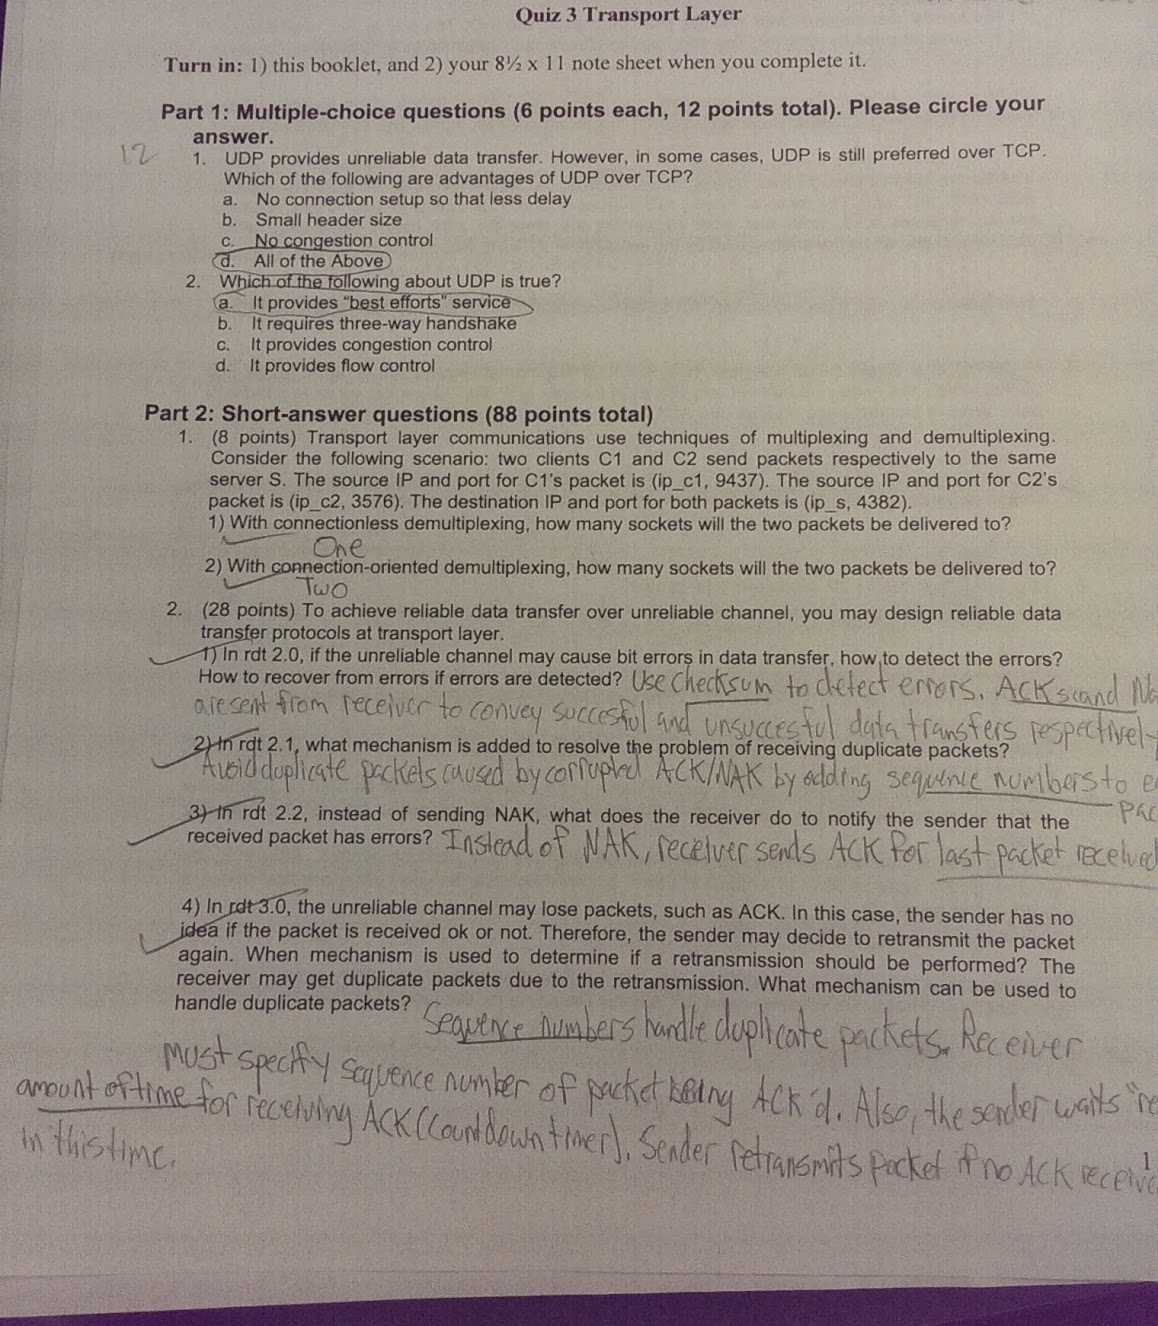 Quiz 3 Transport Layer
Turn in: 1) this booklet, and 2) your 8½ x 11 note sheet when you complete it.
Part 1: Multiple-choice questions (6 points each, 12 points total). Please circle your
answer.
12
1. UDP provides unreliable data transfer. However, in some cases, UDP is still preferred over TCP.
Which of the following are advantages of UDP over TCP?
a. No connection setup so that less delay
b. Small header size
c. No congestion control
d. All of the Above
2. Which of the following about UDP is true?
a. It provides "best efforts" service
b. It requires three-way handshake
c. It provides congestion control
d. It provides flow control
Part 2: Short-answer questions (88 points total)
1. (8 points) Transport layer communications use techniques of multiplexing and demultiplexing.
Consider the following scenario: two clients C1 and C2 send packets respectively to the same
server S. The source IP and port for C1's packet is (ip_c1, 9437). The source IP and port for C2's
packet is (ip_c2, 3576). The destination IP and port for both packets is (ip_s, 4382).
1) With connectionless demultiplexing, how many sockets will the two packets be delivered to?
One
2) With connection-oriented demultiplexing, how many sockets will the two packets be delivered to?
Two
2. (28 points) To achieve reliable data transfer over unreliable channel, you may design reliable data
transfer protocols at transport layer.
1) In rdt 2.0, if the unreliable channel may cause bit errors in data transfer, how to detect the errors?
How to recover from errors if errors are detected? Use checksum to detect errors. ACKs and
are sent from receiver to convey succesful and unsuccesful data transfers respectively
2) In rdt 2.1, what mechanism is added to resolve the problem of receiving duplicate packets?
Avoid duplicate packets caused by corrupted ACK/NAK by adding sequence numbers to
3) In rdt 2.2, instead of sending NAK, what does the receiver do to notify the sender that the
received packet has errors? Instead of NAK, receiver sends ACK for last packet received
4) In rdt 3.0, the unreliable channel may lose packets, such as ACK. In this case, the sender has no
idea if the packet is received ok or not. Therefore, the sender may decide to retransmit the packet
again. When mechanism is used to determine if a retransmission should be performed? The
receiver may get duplicate packets due to the retransmission. What mechanism can be used to
handle duplicate packets? Sequence numbers handle duplicate packets. Receiver
must specify sequence number of packet being ACK'd. Also, the sender waits
amount of time for receiving ACK (Countdown timer). Sender retransmits packet if no ACK
in this time.
1